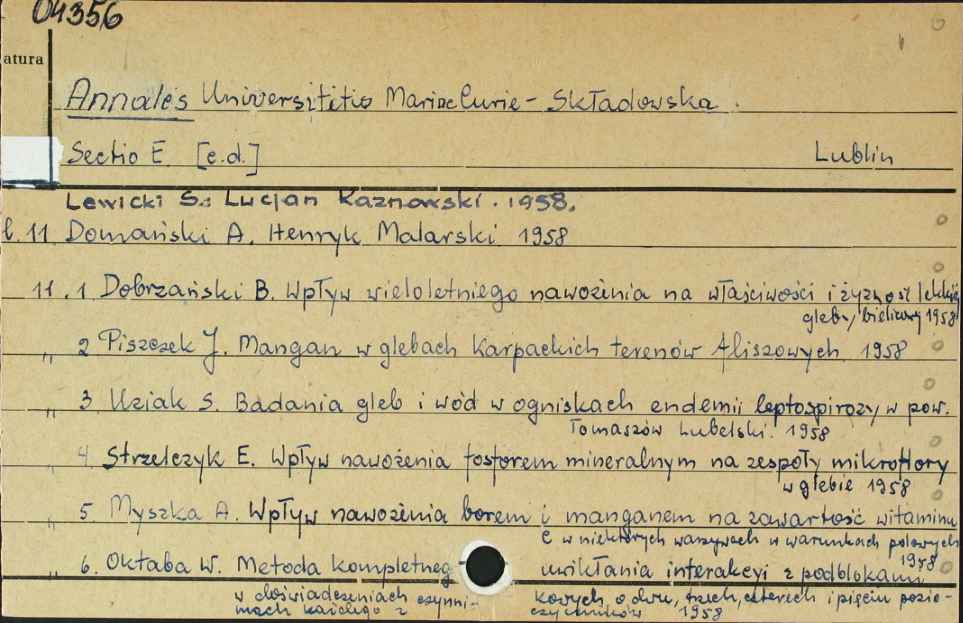 04356
atura
Annales Universititio Mariae Curie - Składowska.
Sectio E. [e.d.] Lublin
Lewicki S.: Lucjan Kaznowski. 1958.
t. 11 Domański A. Henryk Malarski 1958
11. 1 Dobrzański B. Wpływ wieloletniego nawożenia na właściwości i żyzność lekkiej
gleby bielicowej 1958
„ 2 Piszczek J. Mangan w glebach Karpackich terenów fliszowych 1958
„ 3 Uziak S. Badania gleb i wód w ogniskach endemii leptospirozy w pow.
Tomaszów Lubelski. 1958
„ 4. Strzelczyk E. Wpływ nawożenia fosforem mineralnym na zespoły mikroflory
w glebie 1958
„ 5. Myszka A. Wpływ nawożenia borem i manganem na zawartość witaminu
C w niektórych warzywach w warunkach polowych
1958
„ 6. Oktaba W. Metoda kompletneg uwikłania interakcyi z podblokami
w doświadczeniach czynni- kowych, o dwu, trzech, czterech i pięciu pozio-
mach każdego z czynników 1958